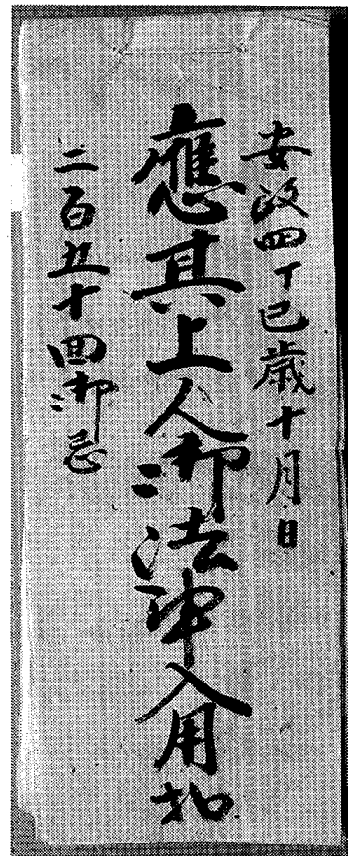 安政四丁巳歳十月日
應其上人御法事入用扣
二百五十回御忌